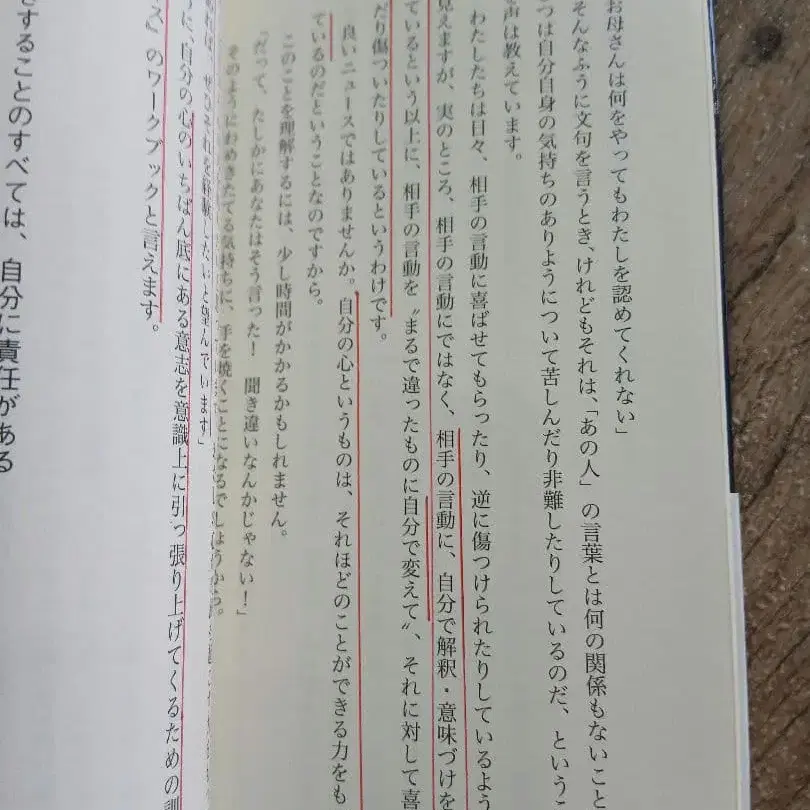 お母さんは何をやってもわたしを認めてくれない」
そんなふうに文句を言うとき、けれどもそれは、「あの人」の言葉とは何の関係もないこと
つは自分自身の気持ちのありようについて苦しんだり非難したりしているのだ、というこ
声は教えています。
わたしたちは日々、相手の言動に喜ばせてもらったり、逆に傷つけられたりしているよう
見えますが、実のところ、相手の言動にではなく、相手の言動に、自分で解釈・意味づけを
ているという以上に、相手の言動を〝まるで違ったものに自分で変えて〟、それに対して喜
だり傷ついたりしているというわけです。
良いニュースではありませんか。自分の心というものは、それほどのことができる力をも
ているのだということなのですから。
このことを理解するには、少し時間がかかるかもしれません。
「だって、たしかにあなたはそう言った！　聞き違いなんかじゃない！」
そのようにわめきたてる気持ちに、手を焼くことになるでしょうから。
ば、ぜひそれを経験したいと望んでいます」
うに、自分の心のいちばん底にある意志を意識上に引っ張り上げてくるための訓
ス』のワークブックと言えます。
をすることのすべては、自分に責任がある